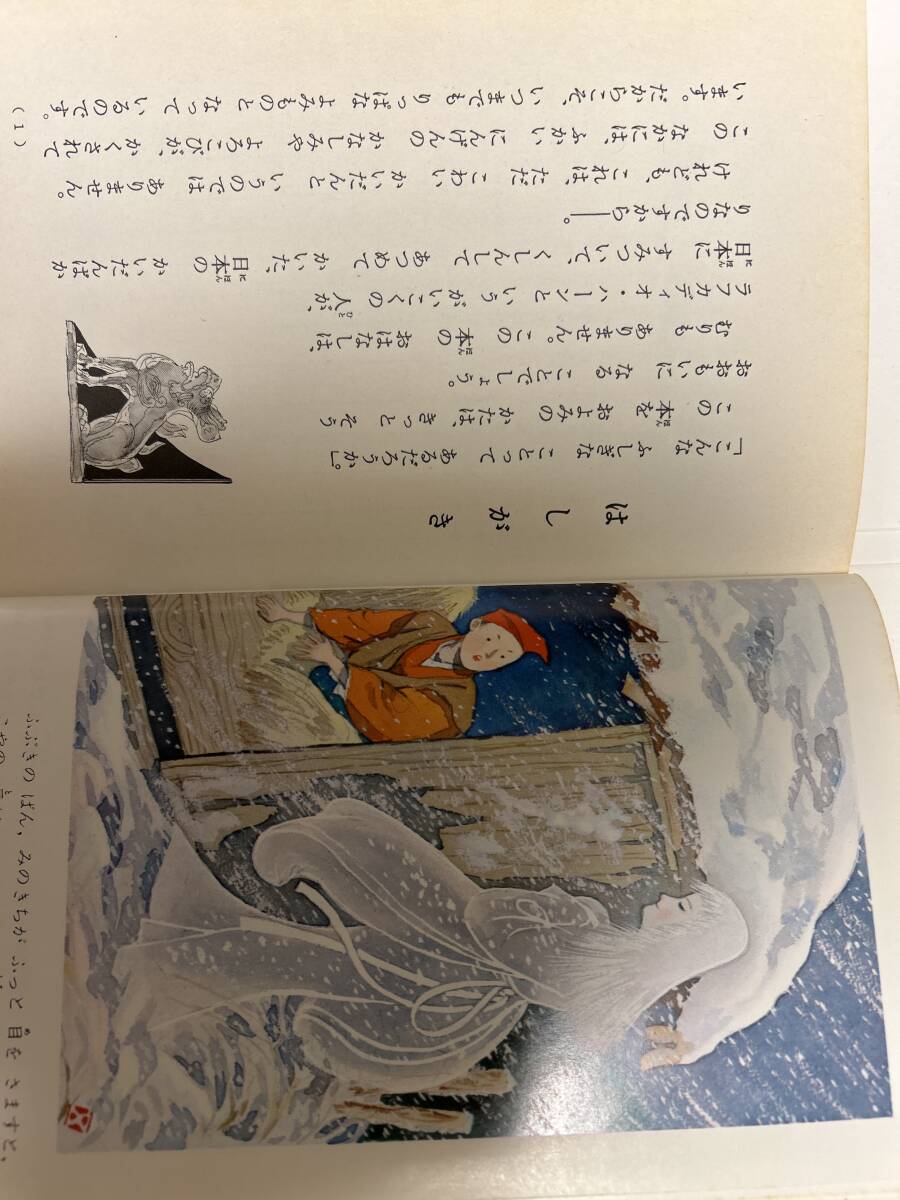 はしがき
「こんな ふしぎな ことって あるだろうか。」
この 本を およみの かたは、きっと そう
おおもいに なる ことでしょう。
むりも ありません。この 本の おはなしは、
ラフカディオ・ハーンと いう がいこくの 人が、
日本に すみついて、くしんして あつめて かいた、日本の かいだんばか
りなのですから——。
けれども、これは、ただ こわい かいだんと いうのでは ありません。
この なかには、ふかい にんげんの かなしみや よろこびが、かくされて
います。だからこそ、いつまでも りっぱな よみものと なって いるのです。
(1)
ふぶきの ばん、みのきちが ふっと 目を さますと、
こやの